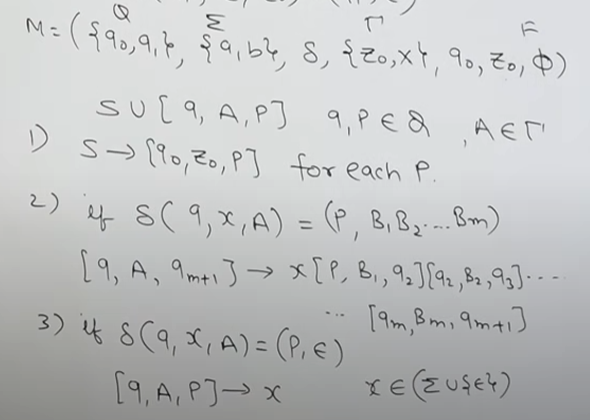 Q Σ Γ F
M = ({q0, q1}, {a, b}, δ, {z0, x}, q0, z0, φ)
S ∪ [q, A, P] q, P ∈ Q , A ∈ Γ
1) S → [q0, z0, P] for each P.
2) if δ(q, x, A) = (P, B1 B2 .... Bm)
[q, A, qm+1] → x[P, B1, q2][q2, B2, q3] ....
... [qm, Bm, qm+1]
3) if δ(q, x, A) = (P, ∈)
[q, A, P] → x x ∈ (Σ ∪ {∈})